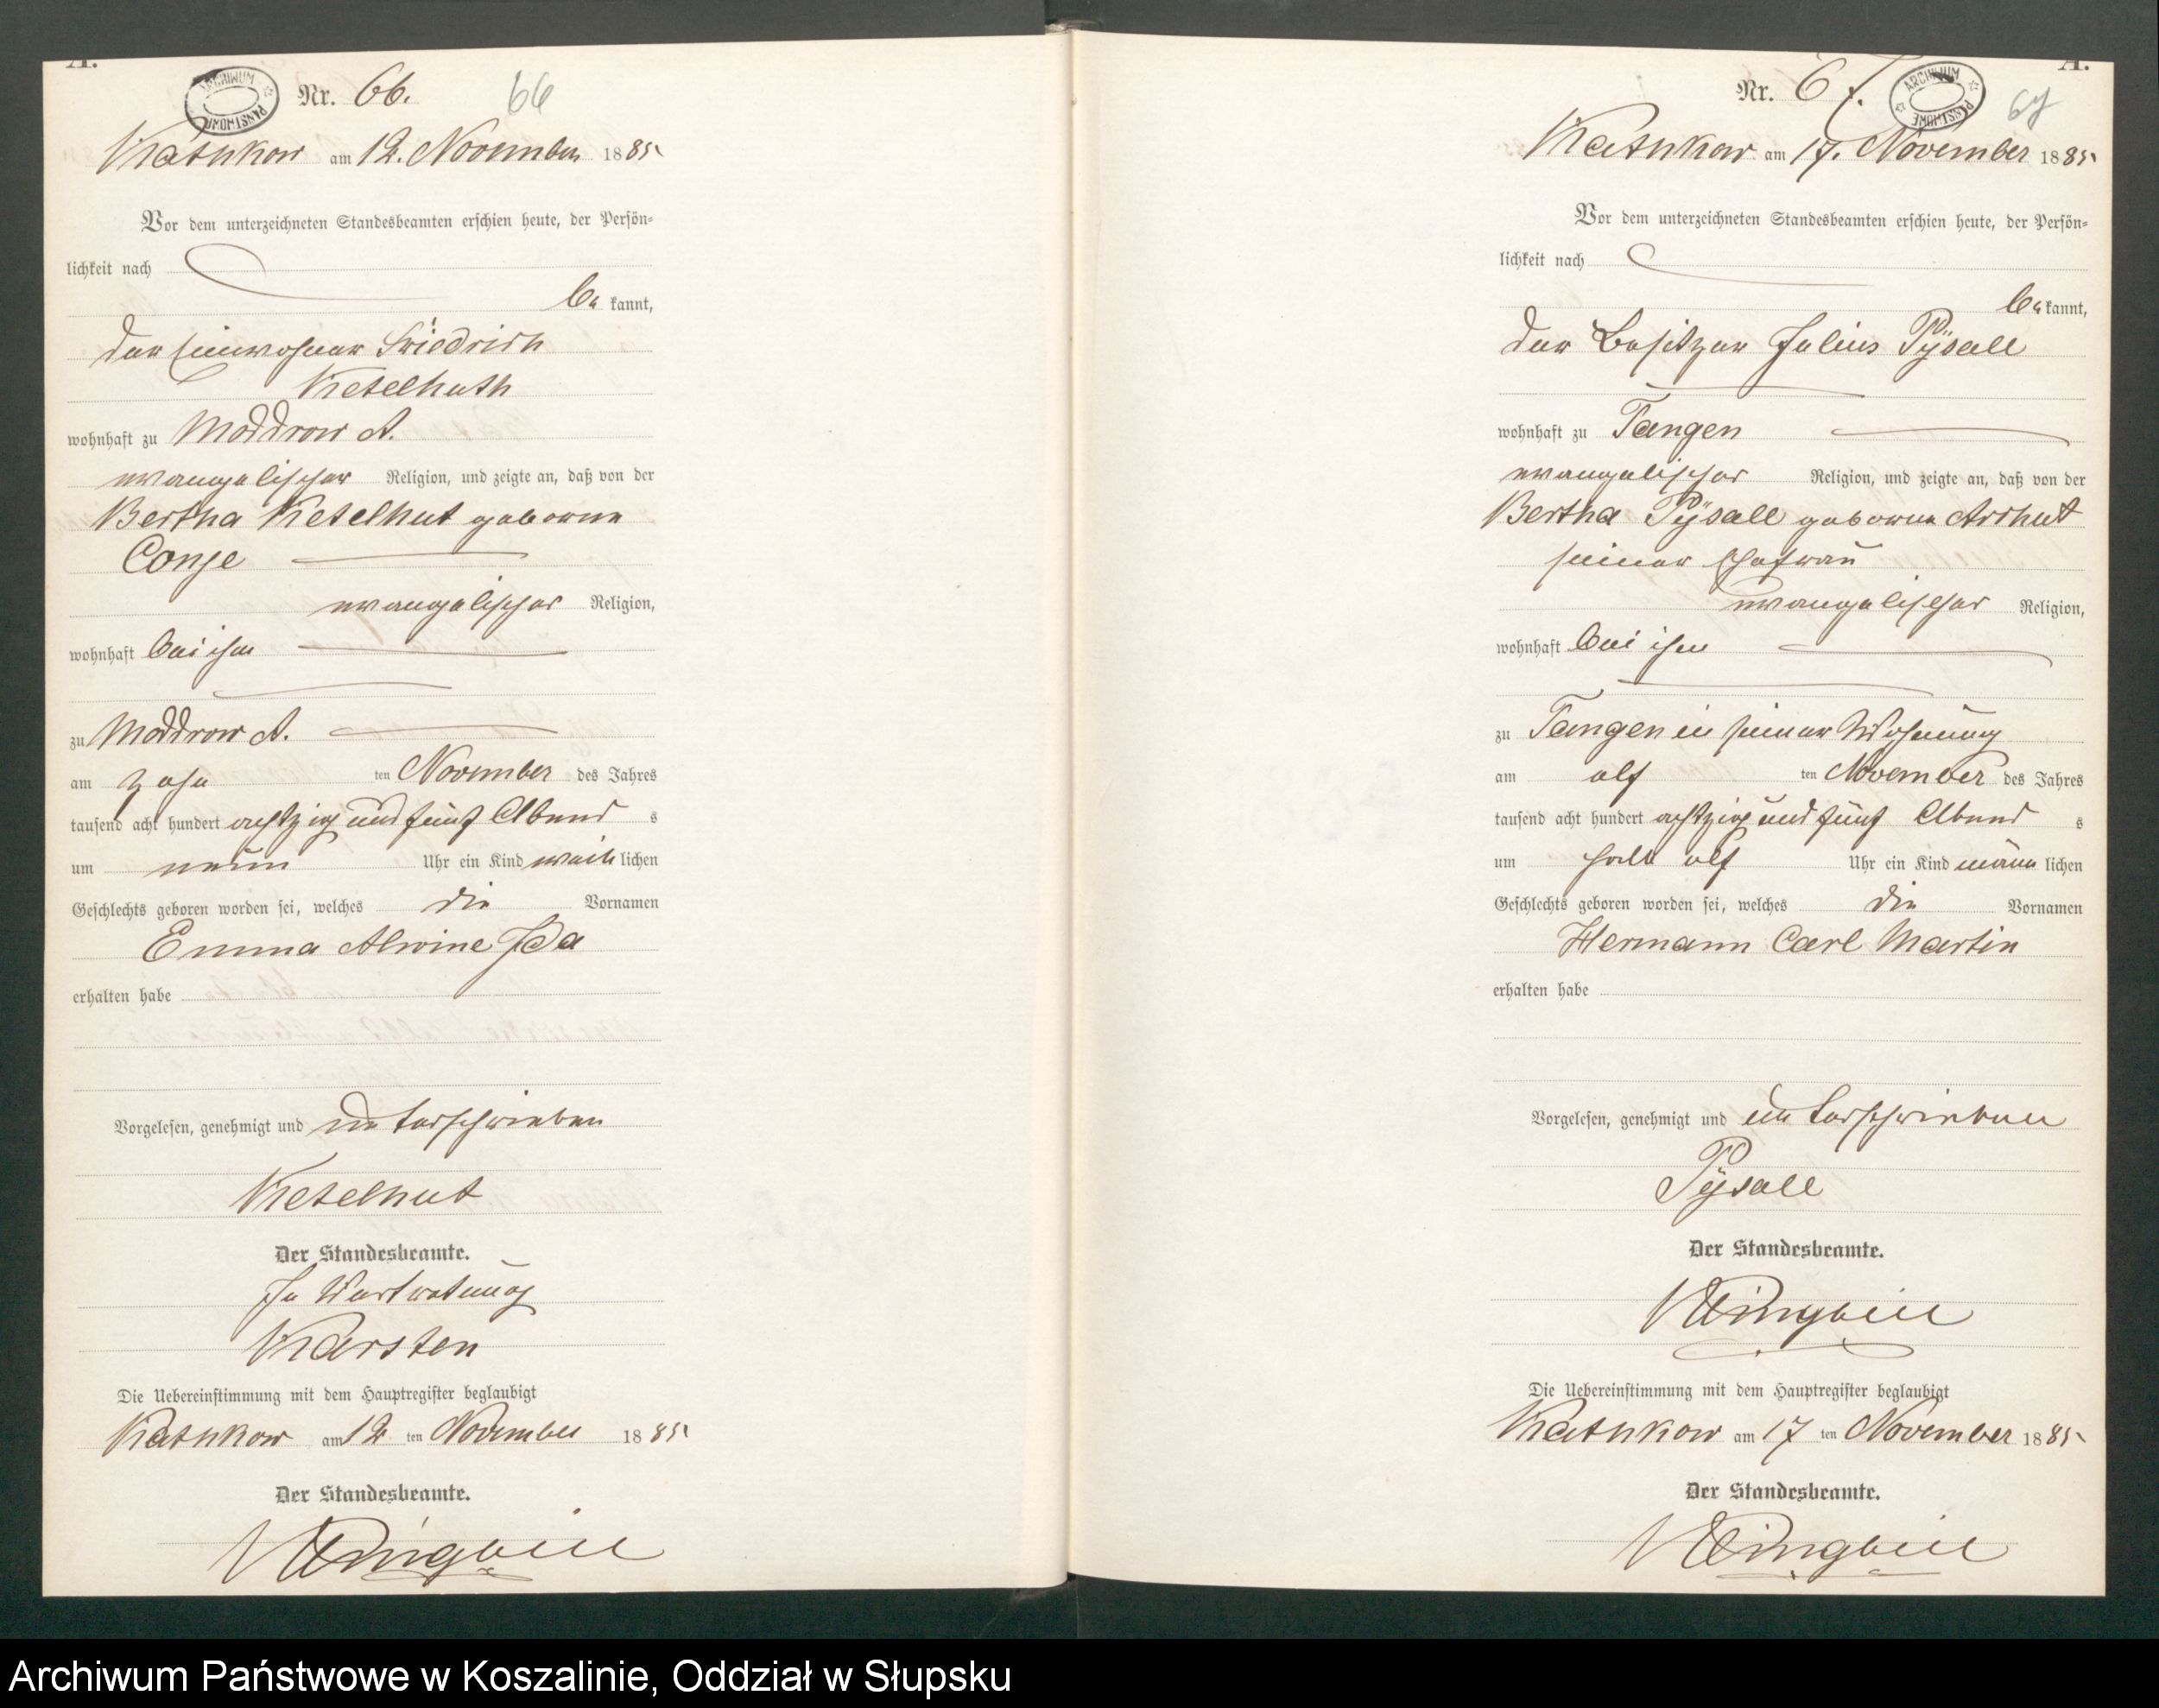 A.
ARCHIWUM PAŃSTWOWE
Nr. 66.
66
Kathkow am 12. November 1885
Vor dem unterzeichneten Standesbeamten erschien heute, der Persön-
lichkeit nach
be kannt,
der Einwohner Friedrich
Ketelhuth
wohnhaft zu Moddrow A.
evangelischer Religion, und zeigte an, daß von der
Bertha Ketelhut geborne
Conje
evangelischer Religion,
wohnhaft bei ihm
zu Moddrow A.
am zehn ten November des Jahres
tausend acht hundert achtzig und fünf Abend s
um neun Uhr ein Kind weib lichen
Geschlechts geboren worden sei, welches die Vornamen
Emma Alwine Ida
erhalten habe
Vorgelesen, genehmigt und unterschrieben
Ketelhut
Der Standesbeamte.
In Vertretung
Karsten
Die Uebereinstimmung mit dem Hauptregister beglaubigt
Kathkow am 12 ten November 1885
Der Standesbeamte.
A.
Nr. 67.
ARCHIWUM PAŃSTWOWE
67
Kathkow am 17. November 1885
Vor dem unterzeichneten Standesbeamten erschien heute, der Persön-
lichkeit nach
be kannt,
der Besitzer Julius Pÿsall
wohnhaft zu Tangen
evangelischer Religion, und zeigte an, daß von der
Bertha Pÿsall geborne Arthut
seiner Ehefrau
evangelischer Religion,
wohnhaft bei ihm
zu Tangen in seiner Wohnung
am elf ten November des Jahres
tausend acht hundert achtzig und fünf Abend s
um halb elf Uhr ein Kind männ lichen
Geschlechts geboren worden sei, welches die Vornamen
Hermann Carl Martin
erhalten habe
Vorgelesen, genehmigt und unterschrieben
Pÿsall
Der Standesbeamte.
Die Uebereinstimmung mit dem Hauptregister beglaubigt
Kathkow am 17 ten November 1885
Der Standesbeamte.
Archiwum Państwowe w Koszalinie, Oddział w Słupsku